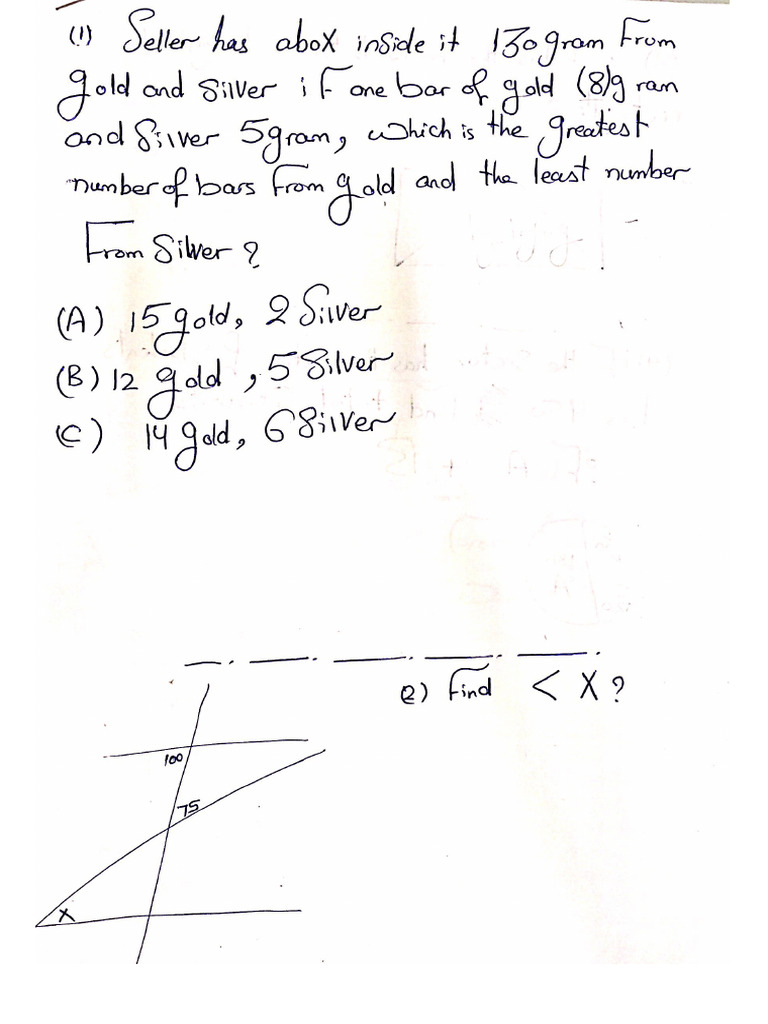 (1) Seller has abox inside it 130gram From
gold and Silver if one bar of gold (8)gram
and Silver 5gram, which is the greatest
number of bars From gold and the least number
From Silver ?
(A) 15 gold, 2 Silver
(B) 12 gold, 5 Silver
(C) 14 gold, 6 Silver
2) Find < X ?
100
75
X